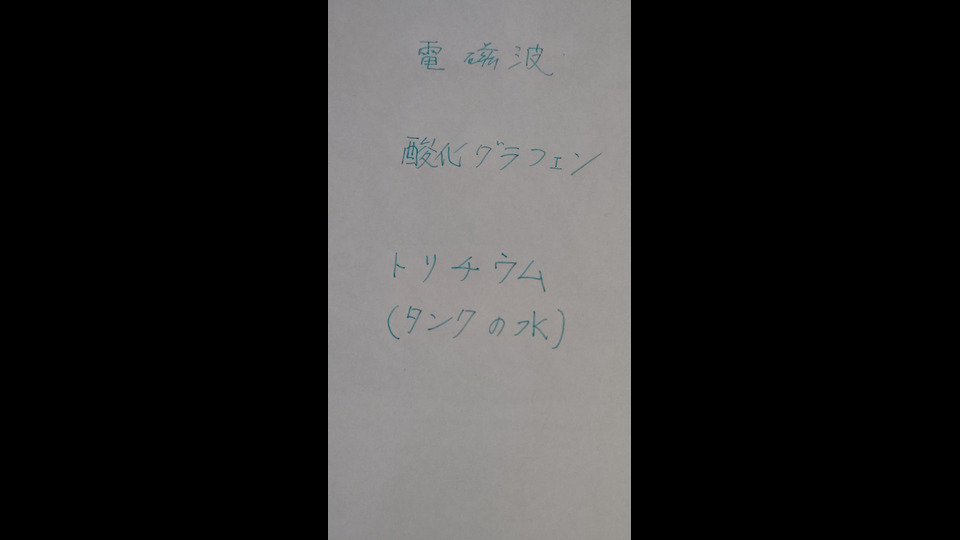 電磁波
酸化グラフェン
トリチウム
(タンクの水)